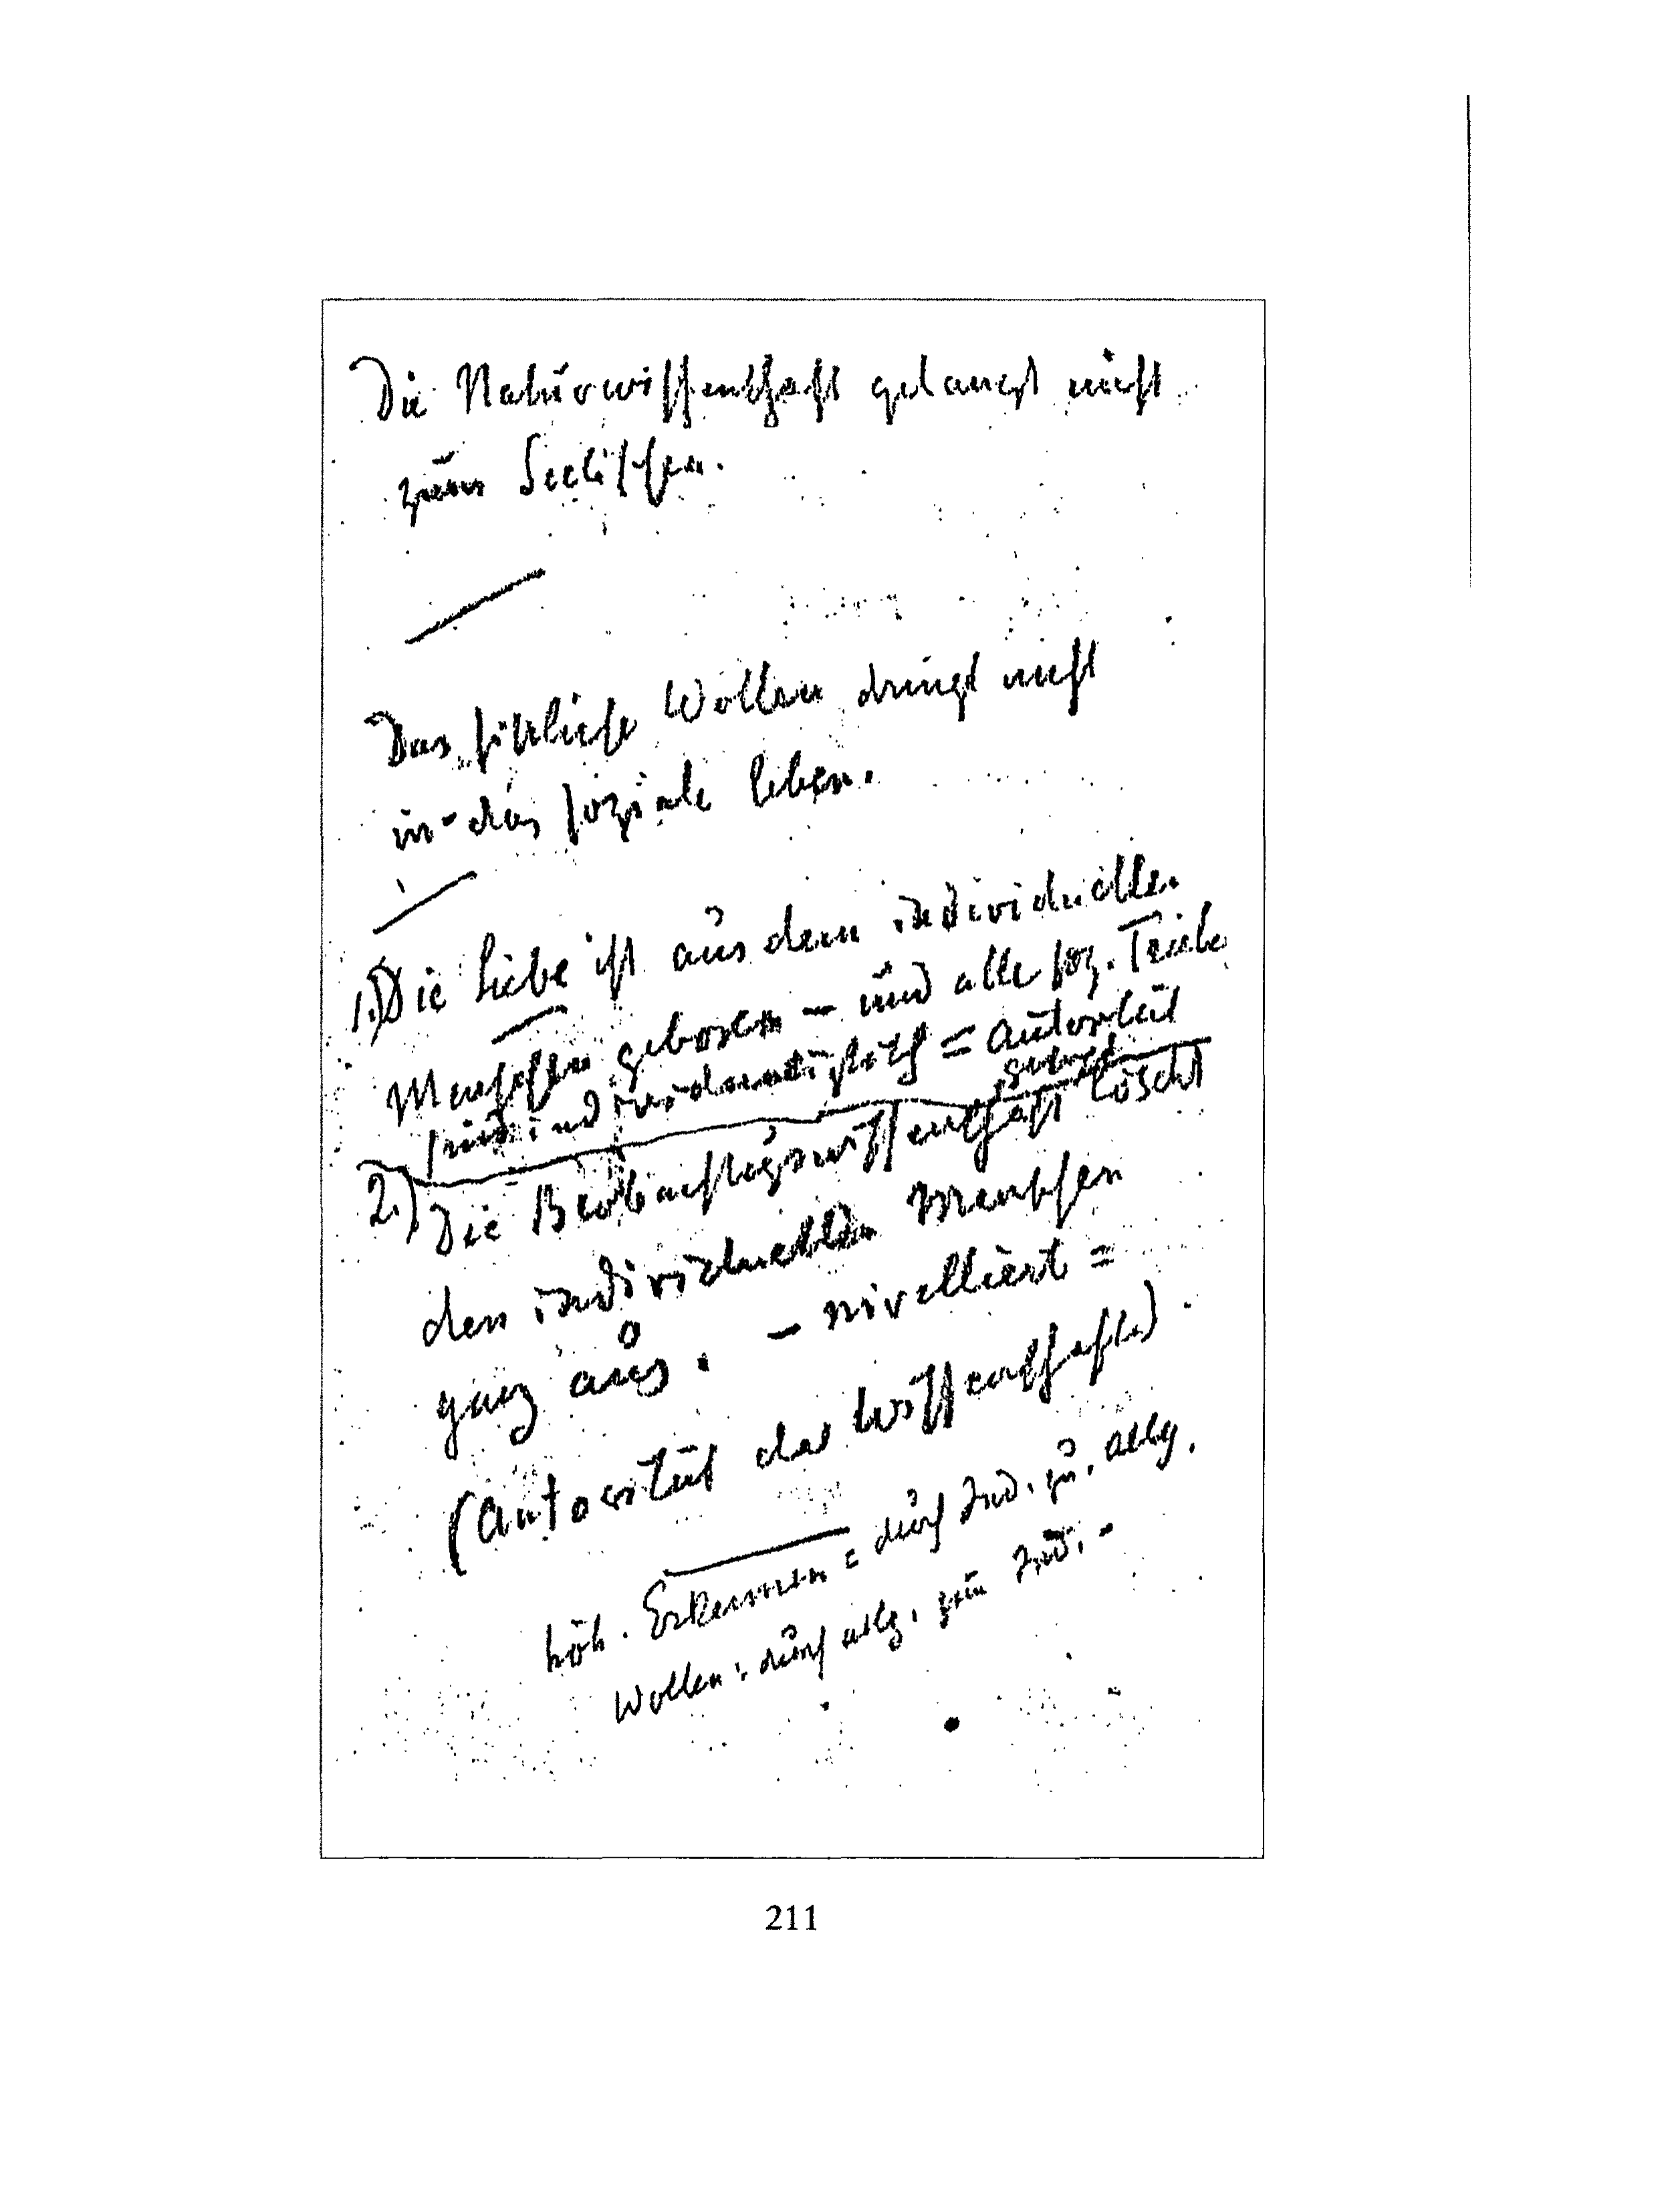 Die Naturwissenschaft gelangt nicht
zum Seelischen.
Das sittliche Wollen dringt nicht
in das soziale Leben.
1.) Die Liebe ist aus dem individuellen
Menschen geboren – und alle soz. Triebe
sind individualistisch = Autorität
2.) Die Beobachtungswissenschaft löscht
den individuellen Menschen
ganz aus. – nivelliert =
(Autorität der Wissenschaft)
höh. Erkennen = durch Ind. zu. Allg.
Wollen: durch Allg. zum Ind. –
211